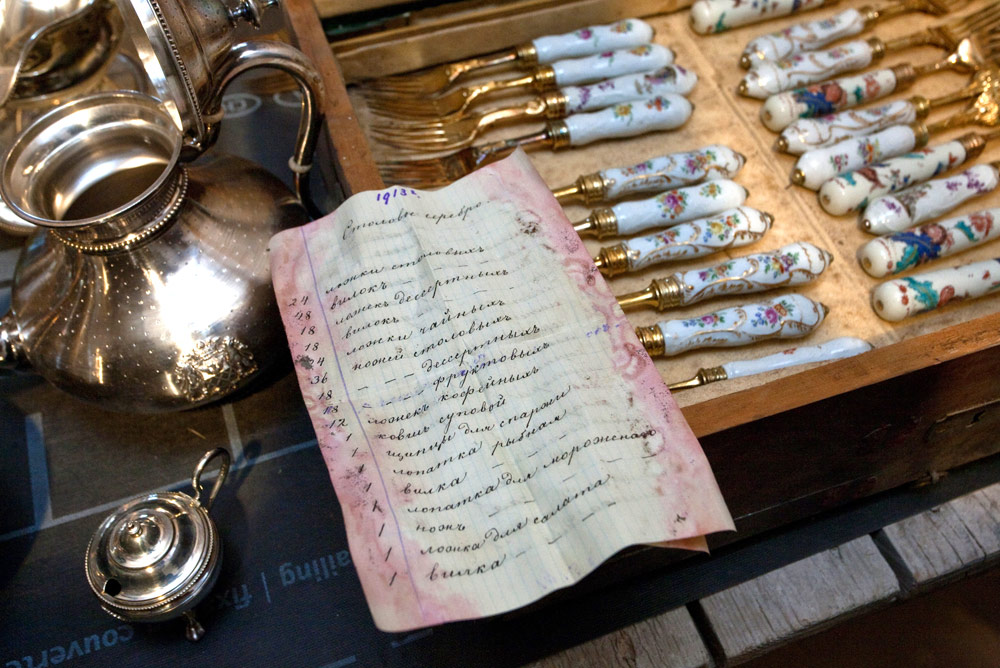 1913
Столовое серебро.
24 ложки столовыхъ
28 вилокъ — — —
18 ложекъ десертныхъ
18 вилокъ — — —
24 ложки чайныхъ
36 ножей столовыхъ
18 — — — десертныхъ
18 — — — фруктовыхъ
12 ложекъ кофейныхъ
1 ковшъ суповой
1 щипцы для спаржи
1 лопатка рыбная
1 вилка — —
1 лопатка для мороженаго
1 ножъ — — —
1 ложка для салата
1 вилка — — —
ailing | fix
couverte